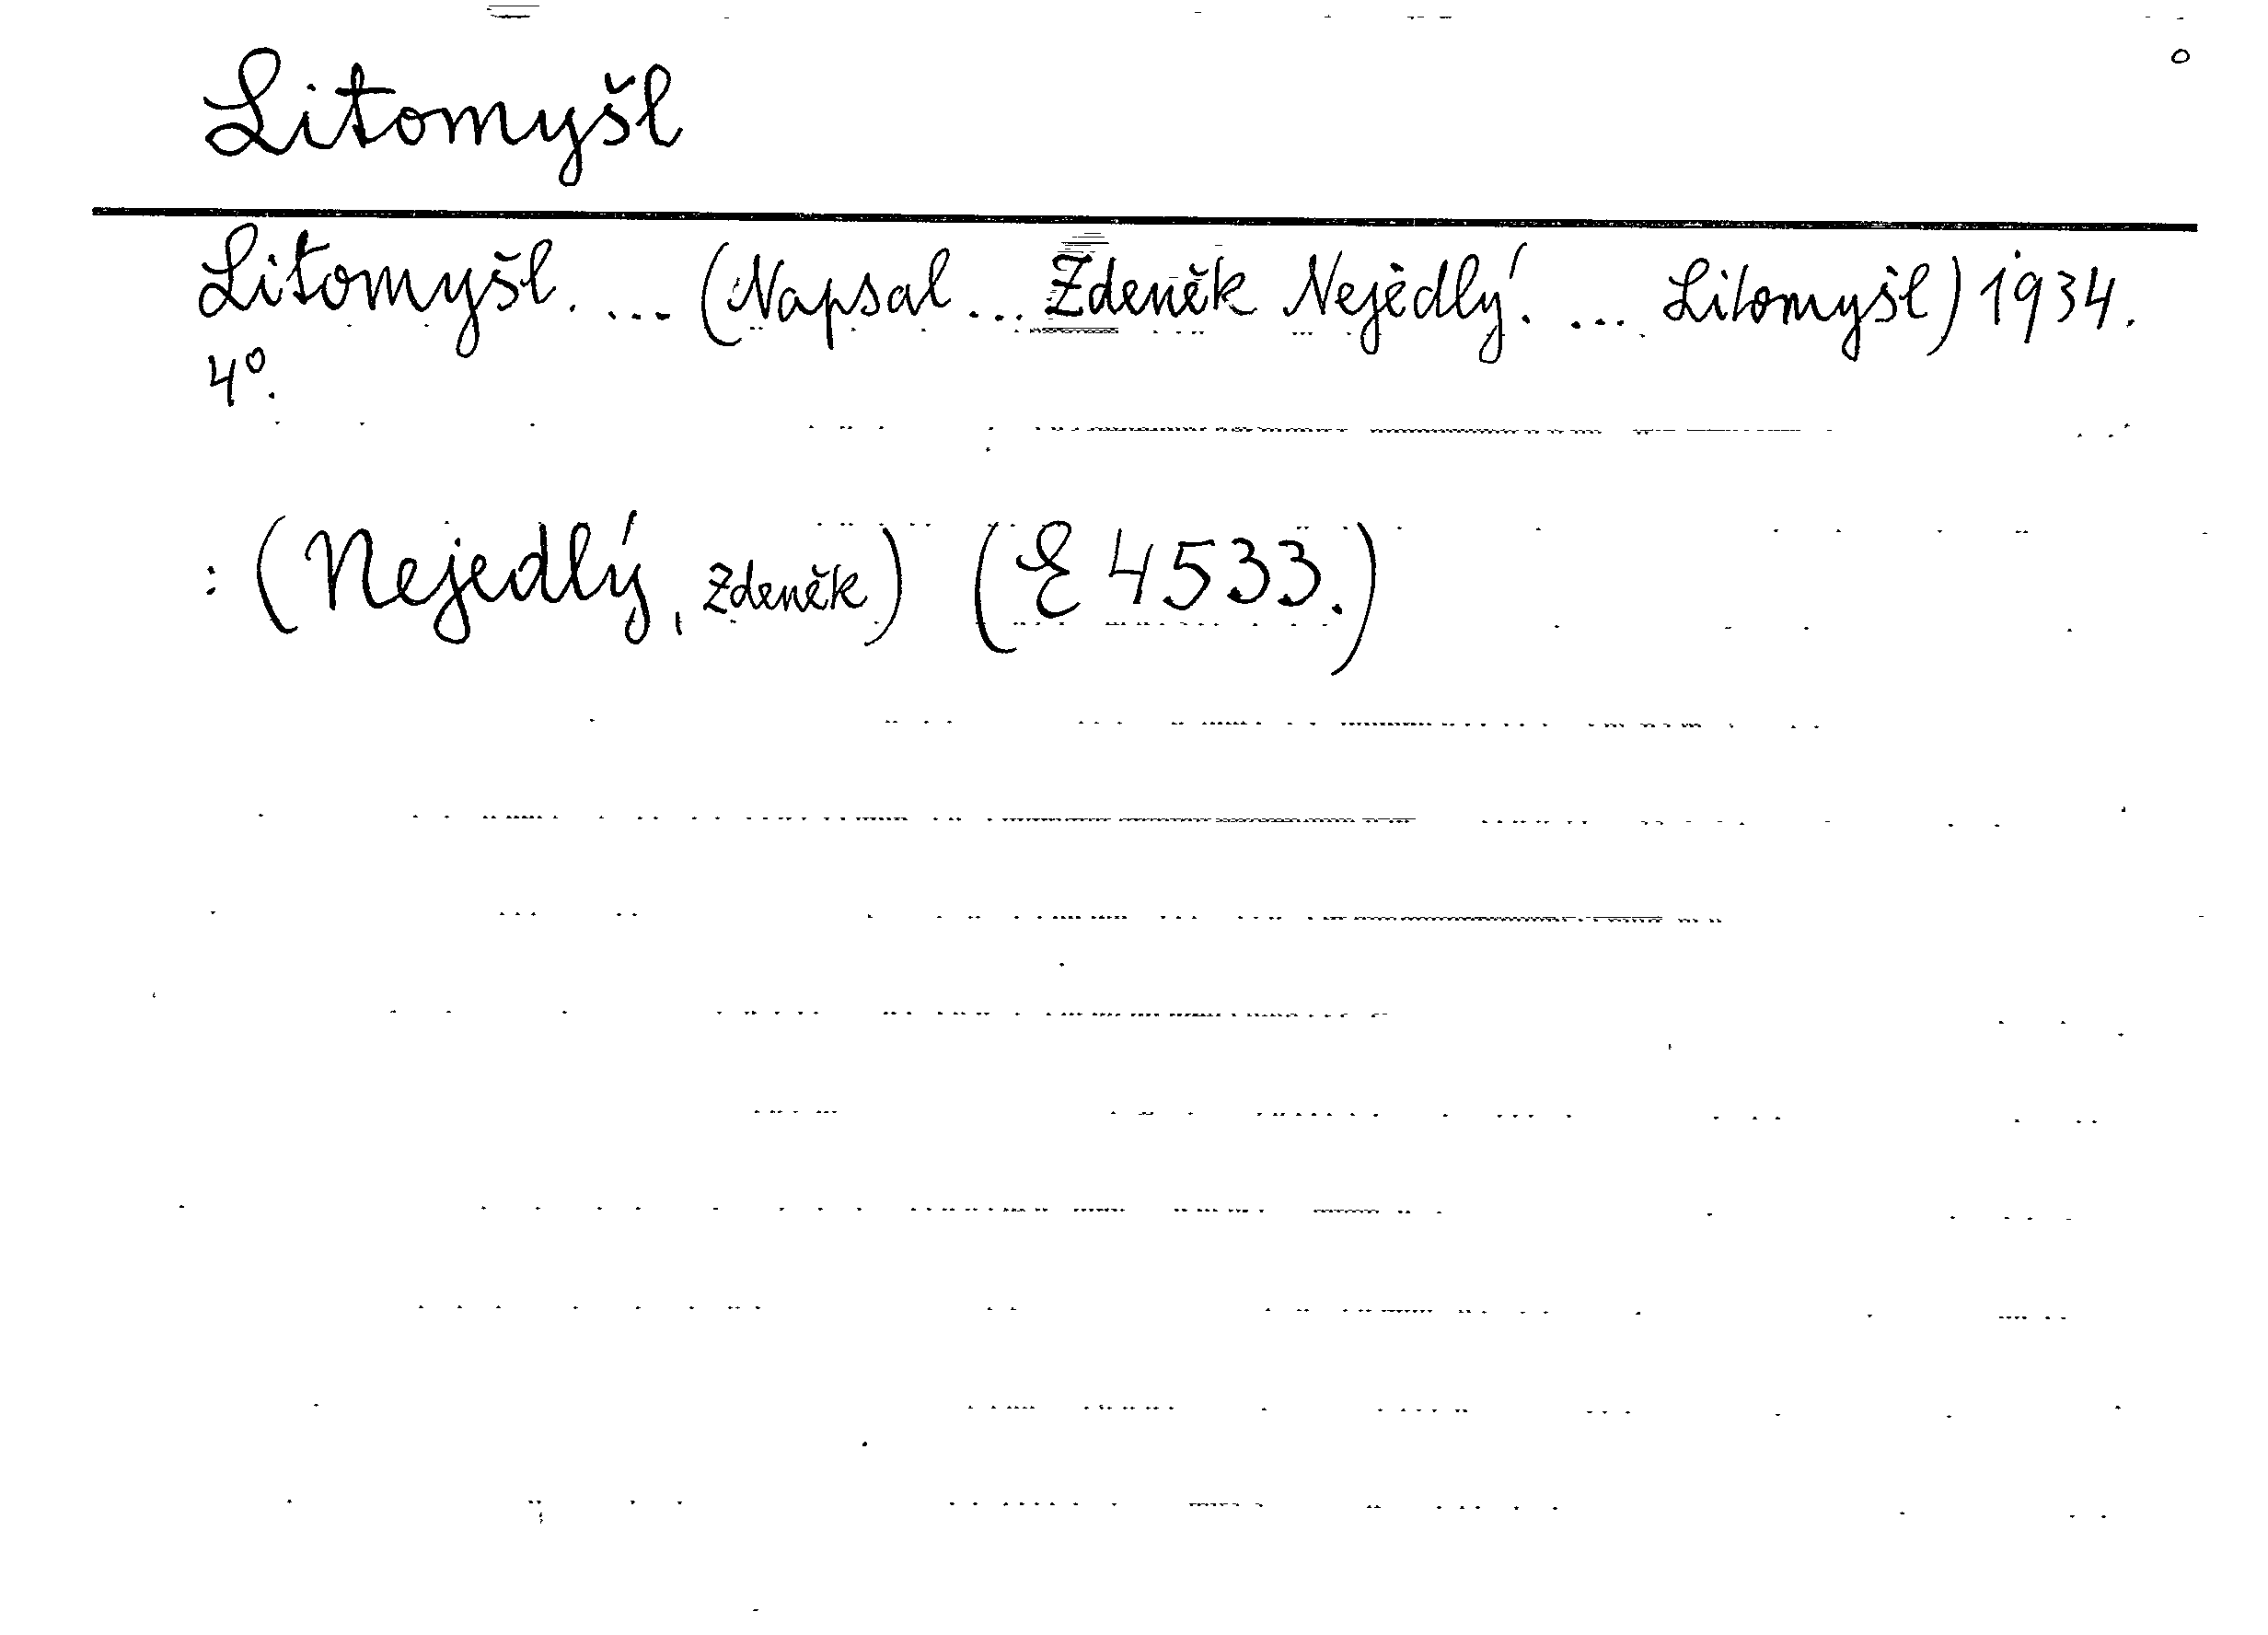 Litomyšl
Litomyšl. ... (Napsal ... Zdeněk Nejedlý. ... Litomyšl) 1934.
4°.
: (Nejedlý, Zdeněk) (E 4533.)